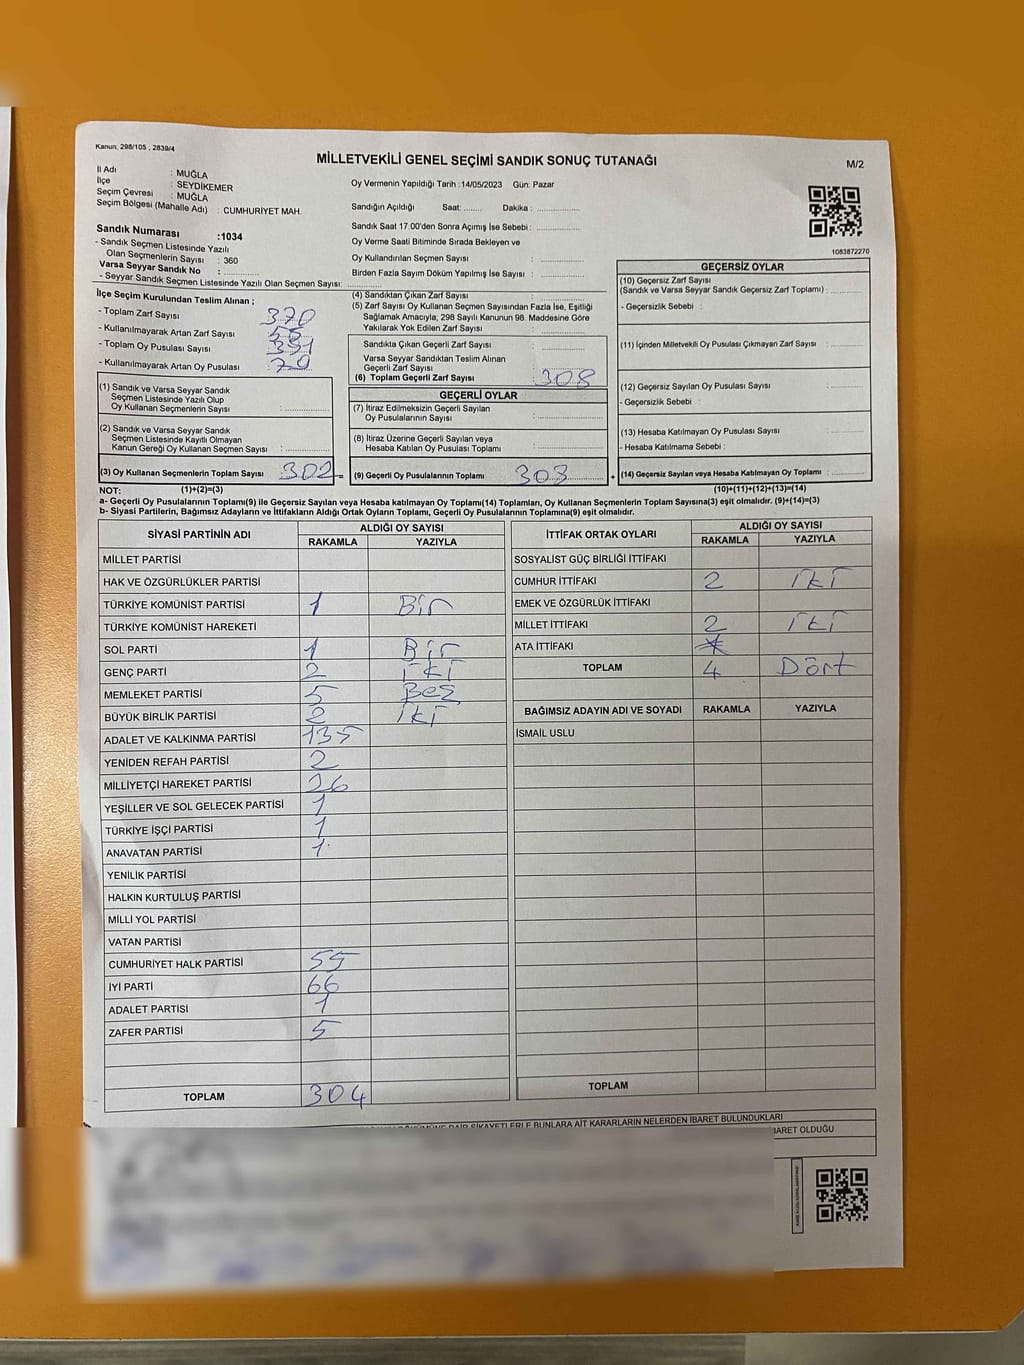 Kanun, 298/105 , 2839/4
MİLLETVEKİLİ GENEL SEÇİMİ SANDIK SONUÇ TUTANAĞI
M/2
İl Adı : MUĞLA
İlçe : SEYDİKEMER
Seçim Çevresi : MUĞLA
Seçim Bölgesi (Mahalle Adı) : CUMHURİYET MAH.
Sandık Numarası :1034
- Sandık Seçmen Listesinde Yazılı
Olan Seçmenlerin Sayısı : 360
Varsa Seyyar Sandık No : ............
- Seyyar Sandık Seçmen Listesinde Yazılı Olan Seçmen Sayısı: ............
Oy Vermenin Yapıldığı Tarih :14/05/2023 Gün: Pazar
Sandığın Açıldığı Saat: ........ Dakika : ................
Sandık Saat 17.00'den Sonra Açımış İse Sebebi : ................
Oy Verme Saati Bitiminde Sırada Bekleyen ve
Oy Kullandırılan Seçmen Sayısı : ................
Birden Fazla Sayım Döküm Yapılmış İse Sayısı : ................
1083872270
İlçe Seçim Kurulundan Teslim Alınan ;
- Toplam Zarf Sayısı : 370
- Kullanılmayarak Artan Zarf Sayısı :
- Toplam Oy Pusulası Sayısı :
- Kullanılmayarak Artan Oy Pusulası :
(1) Sandık ve Varsa Seyyar Sandık
Seçmen Listesinde Yazılı Olup
Oy Kullanan Seçmenlerin Sayısı : ................
(2) Sandık ve Varsa Seyyar Sandık
Seçmen Listesinde Kayıtlı Olmayan
Kanun Gereği Oy Kullanan Seçmen Sayısı : ................
(3) Oy Kullanan Seçmenlerin Toplam Sayısı 302 =
(4) Sandıktan Çıkan Zarf Sayısı : ................
(5) Zarf Sayısı Oy Kullanan Seçmen Sayısından Fazla İse, Eşitliği
Sağlamak Amacıyla; 298 Sayılı Kanunun 98. Maddesine Göre
Yakılarak Yok Edilen Zarf Sayısı : ................
Sandıkta Çıkan Geçerli Zarf Sayısı : ................
Varsa Seyyar Sandıktan Teslim Alınan
Geçerli Zarf Sayısı : ................
(6) Toplam Geçerli Zarf Sayısı : 308
GEÇERLİ OYLAR
(7) İtiraz Edilmeksizin Geçerli Sayılan
Oy Pusulalarının Sayısı : ................
(8) İtiraz Üzerine Geçerli Sayılan veya
Hesaba Katılan Oy Pusulası Toplamı : ................
(9) Geçerli Oy Pusulalarının Toplamı 308 +
GEÇERSİZ OYLAR
(10) Geçersiz Zarf Sayısı
(Sandık ve Varsa Seyyar Sandık Geçersiz Zarf Toplamı) : ............
- Geçersizlik Sebebi :
(11) İçinden Milletvekili Oy Pusulası Çıkmayan Zarf Sayısı : ............
(12) Geçersiz Sayılan Oy Pusulası Sayısı : ............
- Geçersizlik Sebebi :
(13) Hesaba Katılmayan Oy Pusulası Sayısı : ............
- Hesaba Katılmama Sebebi :
(14) Geçersiz Sayılan veya Hesaba Katılmayan Oy Toplamı : ............
NOT: (1)+(2)=(3) (10)+(11)+(12)+(13)=(14)
a- Geçerli Oy Pusulalarının Toplamı(9) ile Geçersiz Sayılan veya Hesaba katılmayan Oy Toplamı(14) Toplamları, Oy Kullanan Seçmenlerin Toplam Sayısına(3) eşit olmalıdır. (9)+(14)=(3)
b- Siyasi Partilerin, Bağımsız Adayların ve İttifakların Aldığı Ortak Oyların Toplamı, Geçerli Oy Pusulalarının Toplamına(9) eşit olmalıdır.
SİYASİ PARTİNİN ADI ALDIĞI OY SAYISI
RAKAMLA YAZIYLA
MİLLET PARTİSİ
HAK VE ÖZGÜRLÜKLER PARTİSİ
TÜRKİYE KOMÜNİST PARTİSİ 1 Bir
TÜRKİYE KOMÜNİST HAREKETİ
SOL PARTİ 1 Bir
GENÇ PARTİ 2 İKİ
MEMLEKET PARTİSİ 5 Beş
BÜYÜK BİRLİK PARTİSİ 2 İKİ
ADALET VE KALKINMA PARTİSİ 135
YENİDEN REFAH PARTİSİ 2
MİLLİYETÇİ HAREKET PARTİSİ 26
YEŞİLLER VE SOL GELECEK PARTİSİ 1
TÜRKİYE İŞÇİ PARTİSİ 1
ANAVATAN PARTİSİ 1
YENİLİK PARTİSİ
HALKIN KURTULUŞ PARTİSİ
MİLLİ YOL PARTİSİ
VATAN PARTİSİ
CUMHURİYET HALK PARTİSİ 55
İYİ PARTİ 66
ADALET PARTİSİ 1
ZAFER PARTİSİ 5
TOPLAM 304
İTTİFAK ORTAK OYLARI ALDIĞI OY SAYISI
RAKAMLA YAZIYLA
SOSYALİST GÜÇ BİRLİĞİ İTTİFAKI
CUMHUR İTTİFAKI 2 İKİ
EMEK VE ÖZGÜRLÜK İTTİFAKI
MİLLET İTTİFAKI 2 İKİ
ATA İTTİFAKI
TOPLAM 4 Dört
BAĞIMSIZ ADAYIN ADI VE SOYADI RAKAMLA YAZIYLA
İSMAİL USLU
TOPLAM
ŞİKAYETLERLE BUNLARA AİT KARARLARIN NELERDEN İBARET BULUNDUKLARI
OLDUĞU